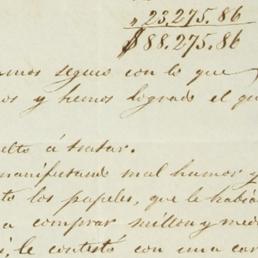 " 23,275.86
$88.275.86
amos seguro con lo que
os y hemos logrado el qu
elto á tratar.
manifestame mal humor y
to los papeles, que le habia
a comprar millon y med
i, le contestó con una car